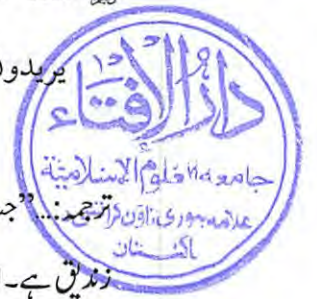 یریدوا
دارالافتاء
جامعہ علوم الاسلامیۃ
علامہ بنوری ٹاؤن کراچی
پاکستان
ترجمہ:...”جب
زندیق ہے۔